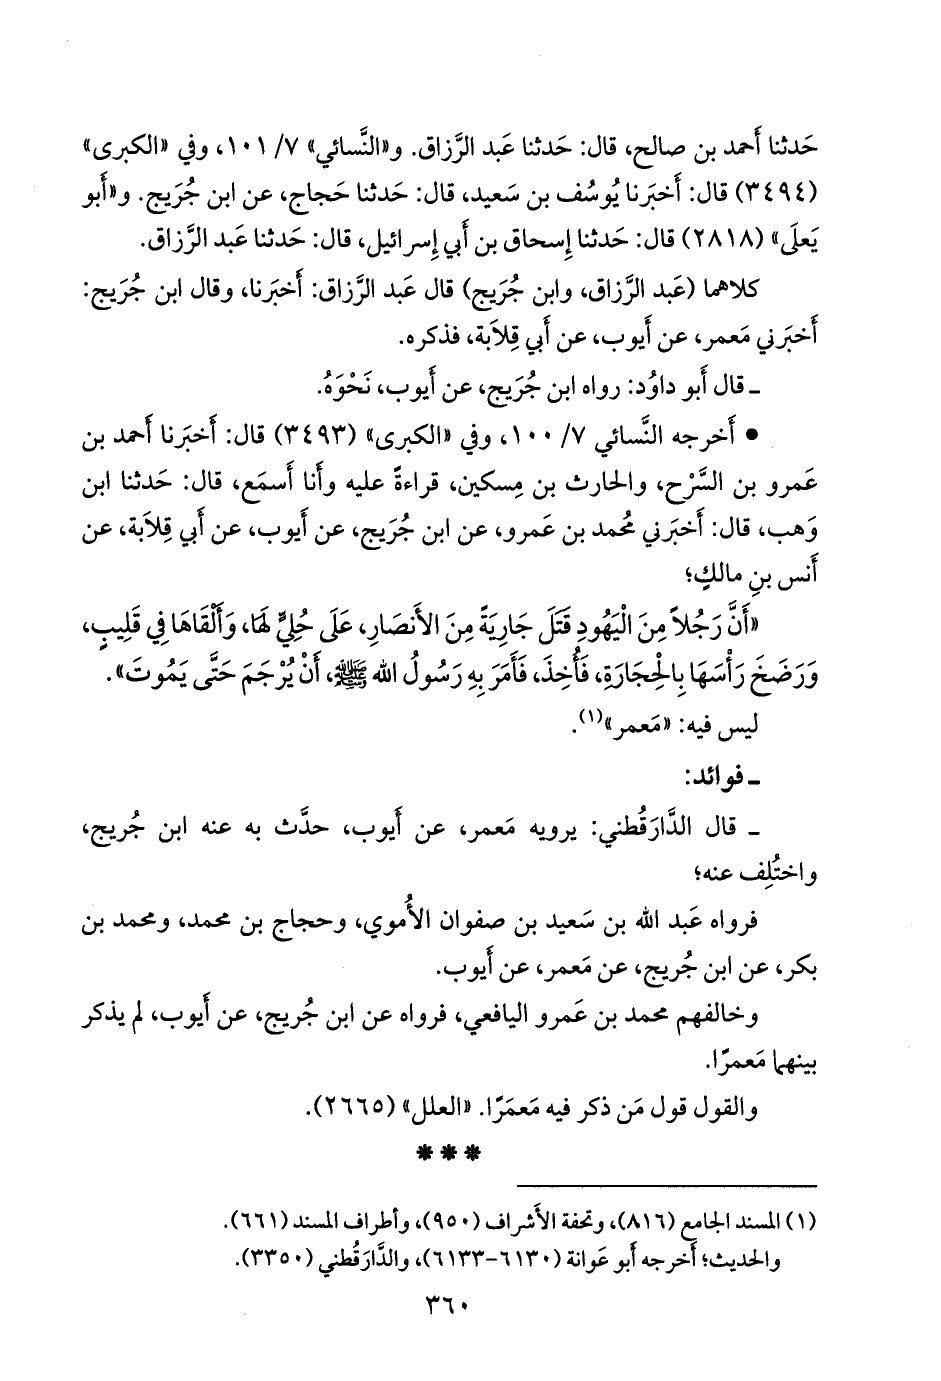 حَدثنا أَحمد بن صالح، قال: حَدثنا عَبد الرَّزاق. و«النَّسائي» ٧/ ١٠١، وفي «الكبرى»
(٣٤٩٤) قال: أَخبَرنا يُوسُف بن سَعيد، قال: حَدثنا حَجاج، عن ابن جُرَيج. و«أَبو
يَعلَى» (٢٨١٨) قال: حَدثنا إِسحاق بن أَبي إِسرائيل، قال: حَدثنا عَبد الرَّزاق.
كلاهما (عَبد الرَّزاق، وابن جُرَيج) قال عَبد الرَّزاق: أَخبَرنا، وقال ابن جُرَيج:
أَخبَرني مَعمر، عن أَيوب، عن أَبي قِلاَبة، فذكره.
ـ قال أَبو داوُد: رواه ابن جُرَيج، عن أَيوب، نَحْوَهُ.
• أَخرجه النَّسائي ٧/ ١٠٠، وفي «الكبرى» (٣٤٩٣) قال: أَخبَرنا أَحمد بن
عَمرو بن السَّرْح، والحارث بن مِسكين، قراءةً عليه وأَنا أَسمَع، قال: حَدثنا ابن
وَهب، قال: أَخبَرني مُحمد بن عَمرو، عن ابن جُرَيج، عن أَيوب، عن أَبي قِلاَبة، عن
أَنس بنِ مالكٍ؛
«أَنَّ رَجُلاً مِنَ الْيَهُودِ قَتَلَ جَارِيَةً مِنَ الأَنصَارِ، عَلَى حُلِيٍّ لَهَا، وَأَلْقَاهَا فِي قَلِيبٍ،
وَرَضَخَ رَأْسَهَا بِالْحِجَارَةِ، فَأُخِذَ، فَأَمَرَ بِهِ رَسُولُ الله ﷺ، أَنْ يُرْجَمَ حَتَّى يَمُوتَ».
ليس فيه: «مَعمر»(١).
ـ فوائد:
ـ قال الدَّارَقُطني: يرويه مَعمر، عن أَيوب، حدَّث به عنه ابن جُريج،
واختُلِف عنه؛
فرواه عَبد الله بن سَعيد بن صفوان الأُموي، وحجاج بن محمد، ومحمد بن
بكر، عن ابن جُريج، عن مَعمر، عن أَيوب.
وخالفهم محمد بن عَمرو اليافعي، فرواه عن ابن جُريج، عن أَيوب، لم يذكر
بينهما مَعمرًا.
والقول قول مَن ذكر فيه مَعمَرًا. «العلل» (٢٦٦٥).
* * *
(١) المسند الجامع (٨١٦)، وتحفة الأَشراف (٩٥٠)، وأطراف المسند (٦٦١).
والحديث؛ أَخرجه أَبو عَوانة (٦١٣٠-٦١٣٣)، والدَّارَقُطني (٣٣٥٠).
٣٦٠